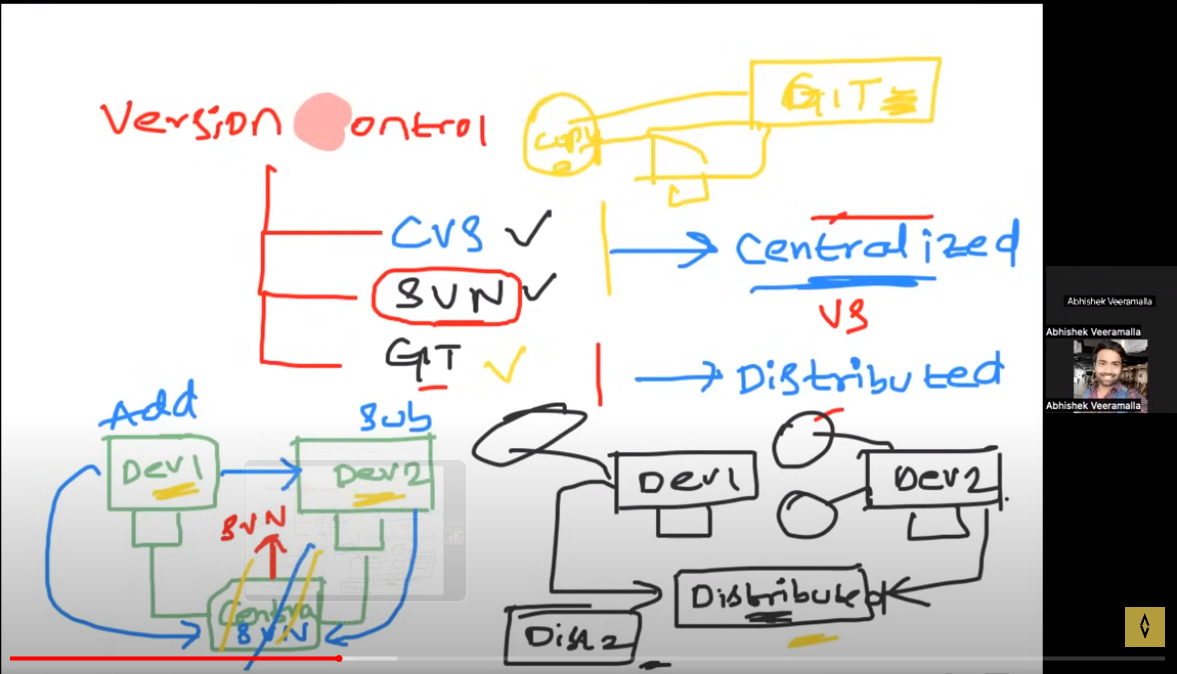 Version Control
GIT
copy
CVS
SVN
GIT
Centralized
VS
Distributed
Add
Sub
Dev1
Dev2
SVN
Central
SVN
Dev1
Dev2
Distributed
Dist 2
Abhishek Veeramalla
Abhishek Veeramalla
Abhishek Veeramalla